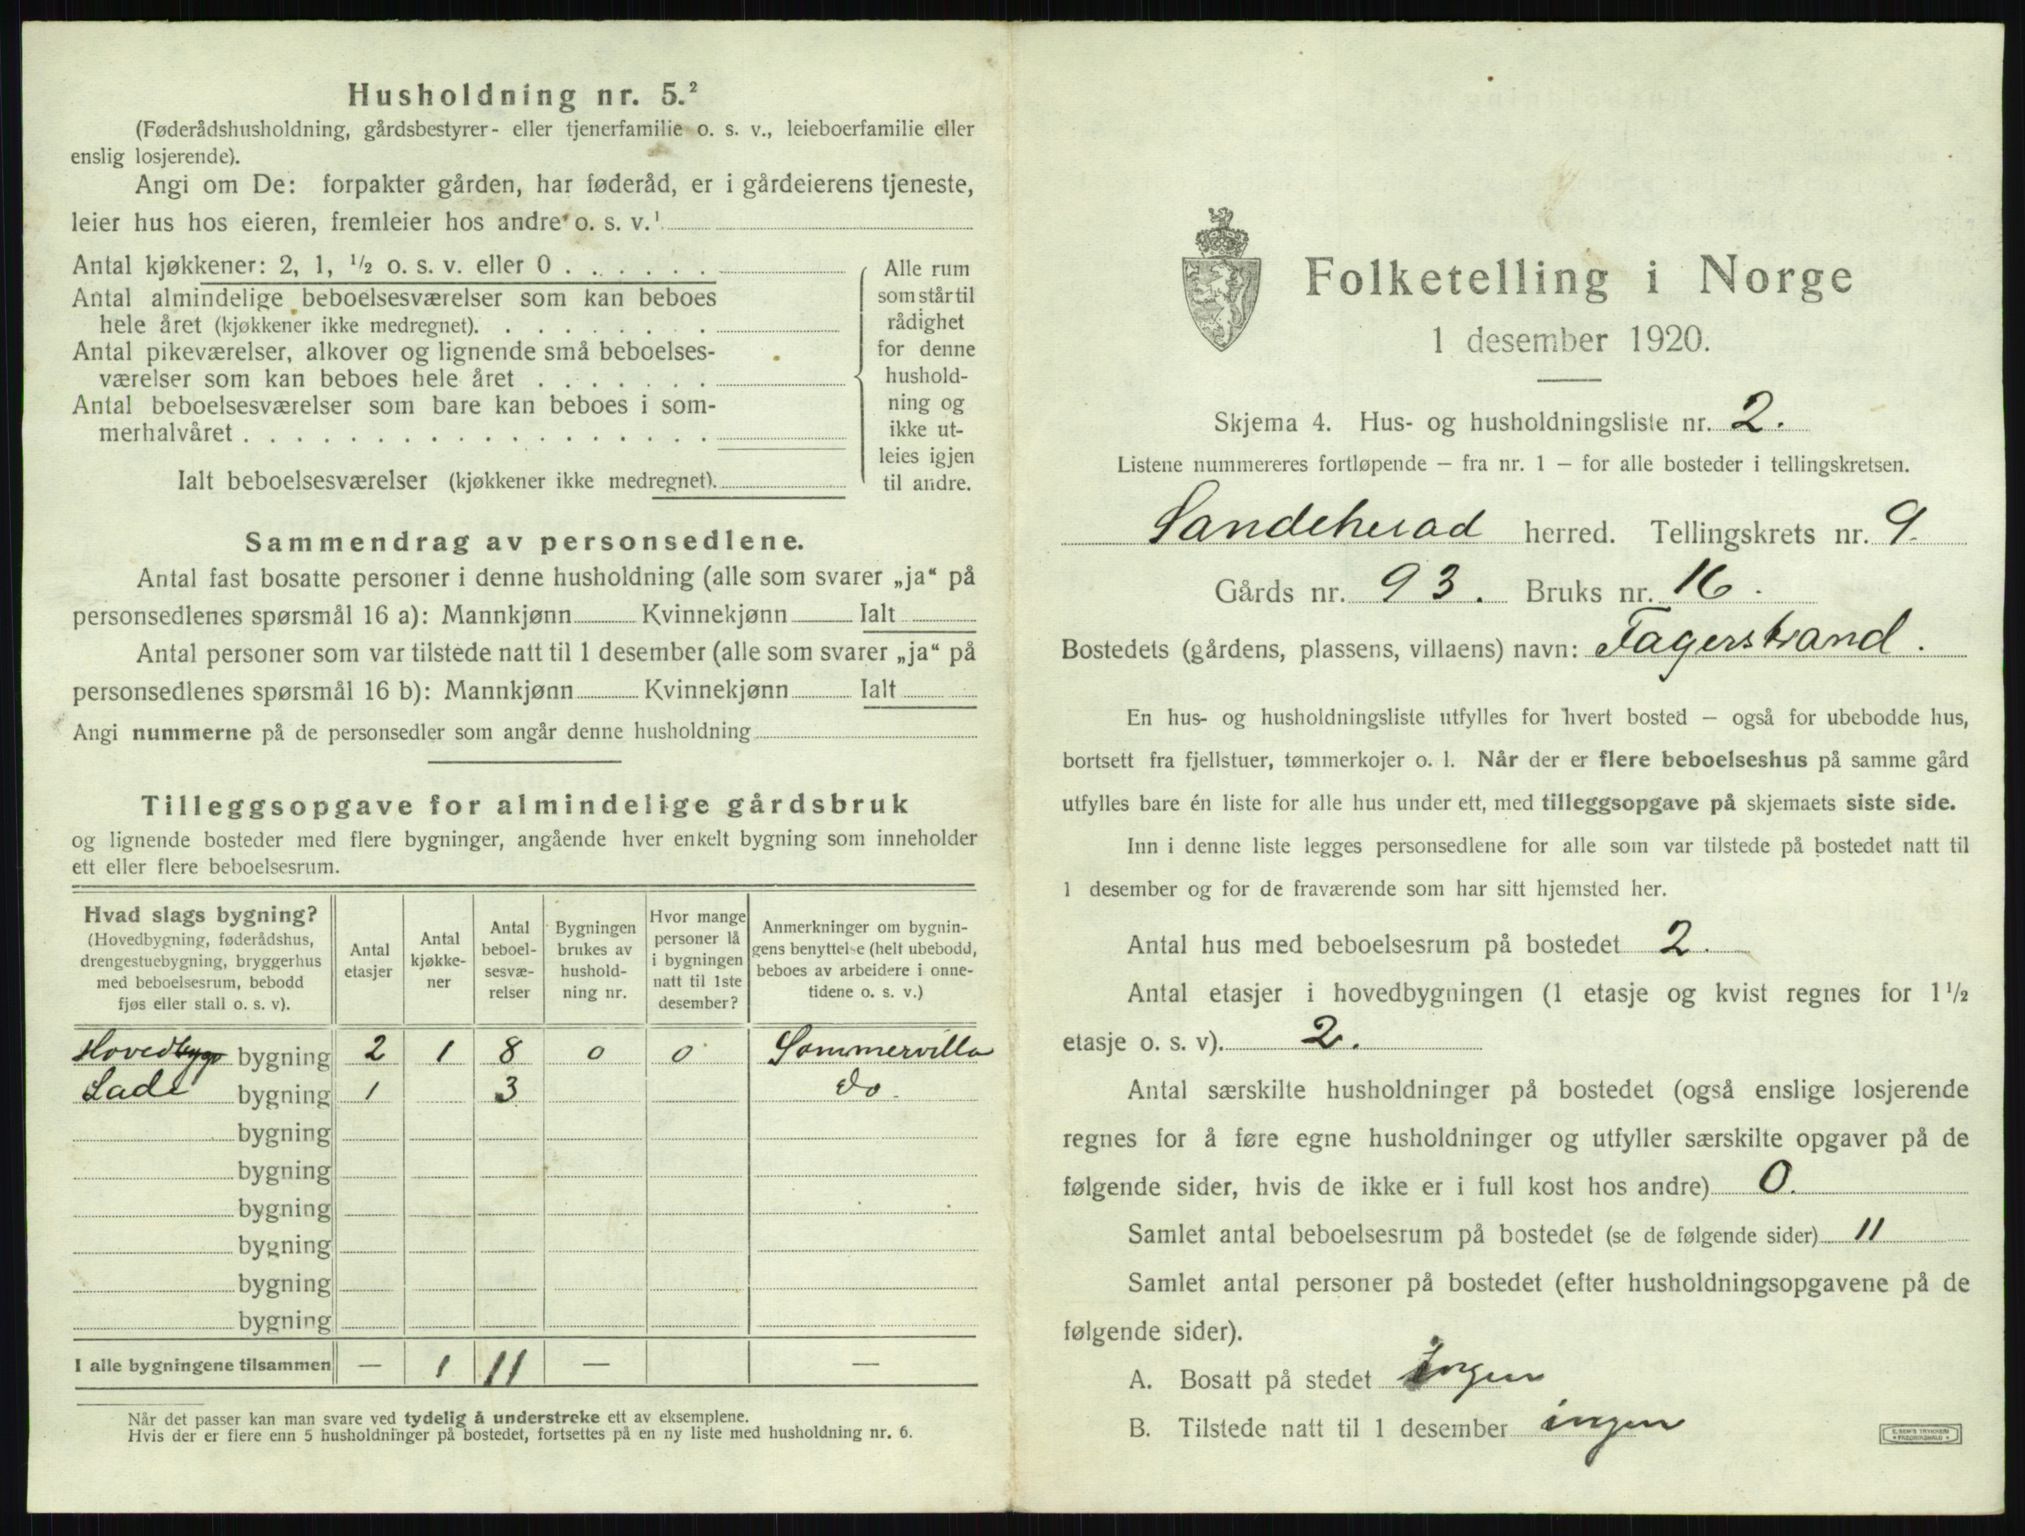 Husholdning nr. 5.²
(Føderådshusholdning, gårdsbestyrer- eller tjenerfamilie o. s. v., leieboerfamilie eller
enslig losjerende).
Angi om De: forpakter gården, har føderåd, er i gårdeierens tjeneste,
leier hus hos eieren, fremleier hos andre o. s. v.¹
Antal kjøkkener: 2, 1, ½ o. s. v. eller 0 . . . . . .
Antal almindelige beboelsesværelser som kan beboes
hele året (kjøkkener ikke medregnet). . . . . . . . .
Antal pikeværelser, alkover og lignende små beboelses-
værelser som kan beboes hele året . . . . . . .
Antal beboelsesværelser som bare kan beboes i som-
merhalvåret . . . . . . . . . . . . . . . . . .
Ialt beboelsesværelser (kjøkkener ikke medregnet).
Alle rum
som står til
rådighet
for denne
hushold-
ning og
ikke ut-
leies igjen
til andre.
Sammendrag av personsedlene.
Antal fast bosatte personer i denne husholdning (alle som svarer „ja“ på
personsedlenes spørsmål 16 a): Mannkjønn Kvinnekjønn Ialt
Antal personer som var tilstede natt til 1 desember (alle som svarer „ja“ på
personsedlenes spørsmål 16 b): Mannkjønn Kvinnekjønn Ialt
Angi nummerne på de personsedler som angår denne husholdning
Tilleggsopgave for almindelige gårdsbruk
og lignende bosteder med flere bygninger, angående hver enkelt bygning som inneholder
ett eller flere beboelsesrum.
Hvad slags bygning?
(Hovedbygning, føderådshus,
drengestuebygning, bryggerhus
med beboelsesrum, bebodd
fjøs eller stall o. s. v).
Antal
etasjer
Antal
kjøkke-
ner
Antal
beboel-
sesvæ-
relser
Bygningen
brukes av
hushold-
ning nr.
Hvor mange
personer lå
i bygningen
natt til 1ste
desember?
Anmerkninger om bygnin-
gens benyttelse (helt ubebodd,
beboes av arbeidere i onne-
tidene o. s. v.)
Hovedbygg bygning 2 1 8 0 0 Sommervilla
Lade bygning 1 3 do.
bygning
bygning
bygning
bygning
bygning
bygning
I alle bygningene tilsammen — 1 11 — —
Når det passer kan man svare ved tydelig å understreke ett av eksemplene.
Hvis der er flere enn 5 husholdninger på bostedet, fortsettes på en ny liste med husholdning nr. 6.
Folketelling i Norge
1 desember 1920.
Skjema 4. Hus- og husholdningsliste nr. 2.
Listene nummereres fortløpende — fra nr. 1 — for alle bosteder i tellingskretsen.
Sandeherad herred. Tellingskrets nr. 9.
Gårds nr. 93. Bruks nr. 16.
Bostedets (gårdens, plassens, villaens) navn: Fagerstrand.
En hus- og husholdningsliste utfylles for hvert bosted — også for ubebodde hus,
bortsett fra fjellstuer, tømmerkojer o. l. Når der er flere beboelseshus på samme gård
utfylles bare én liste for alle hus under ett, med tilleggsopgave på skjemaets siste side.
Inn i denne liste legges personsedlene for alle som var tilstede på bostedet natt til
1 desember og for de fraværende som har sitt hjemsted her.
Antal hus med beboelsesrum på bostedet 2.
Antal etasjer i hovedbygningen (1 etasje og kvist regnes for 1½
etasje o. s. v). 2.
Antal særskilte husholdninger på bostedet (også enslige losjerende
regnes for å føre egne husholdninger og utfyller særskilte opgaver på de
følgende sider, hvis de ikke er i full kost hos andre) 0.
Samlet antal beboelsesrum på bostedet (se de følgende sider) 11
Samlet antal personer på bostedet (efter husholdningsopgavene på de
følgende sider).
A. Bosatt på stedet Ingen
B. Tilstede natt til 1 desember ingen